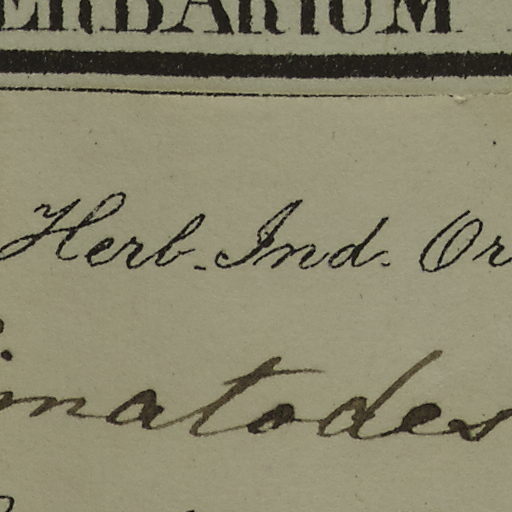 ERBARIUM
Herb. Ind. Or
matodes